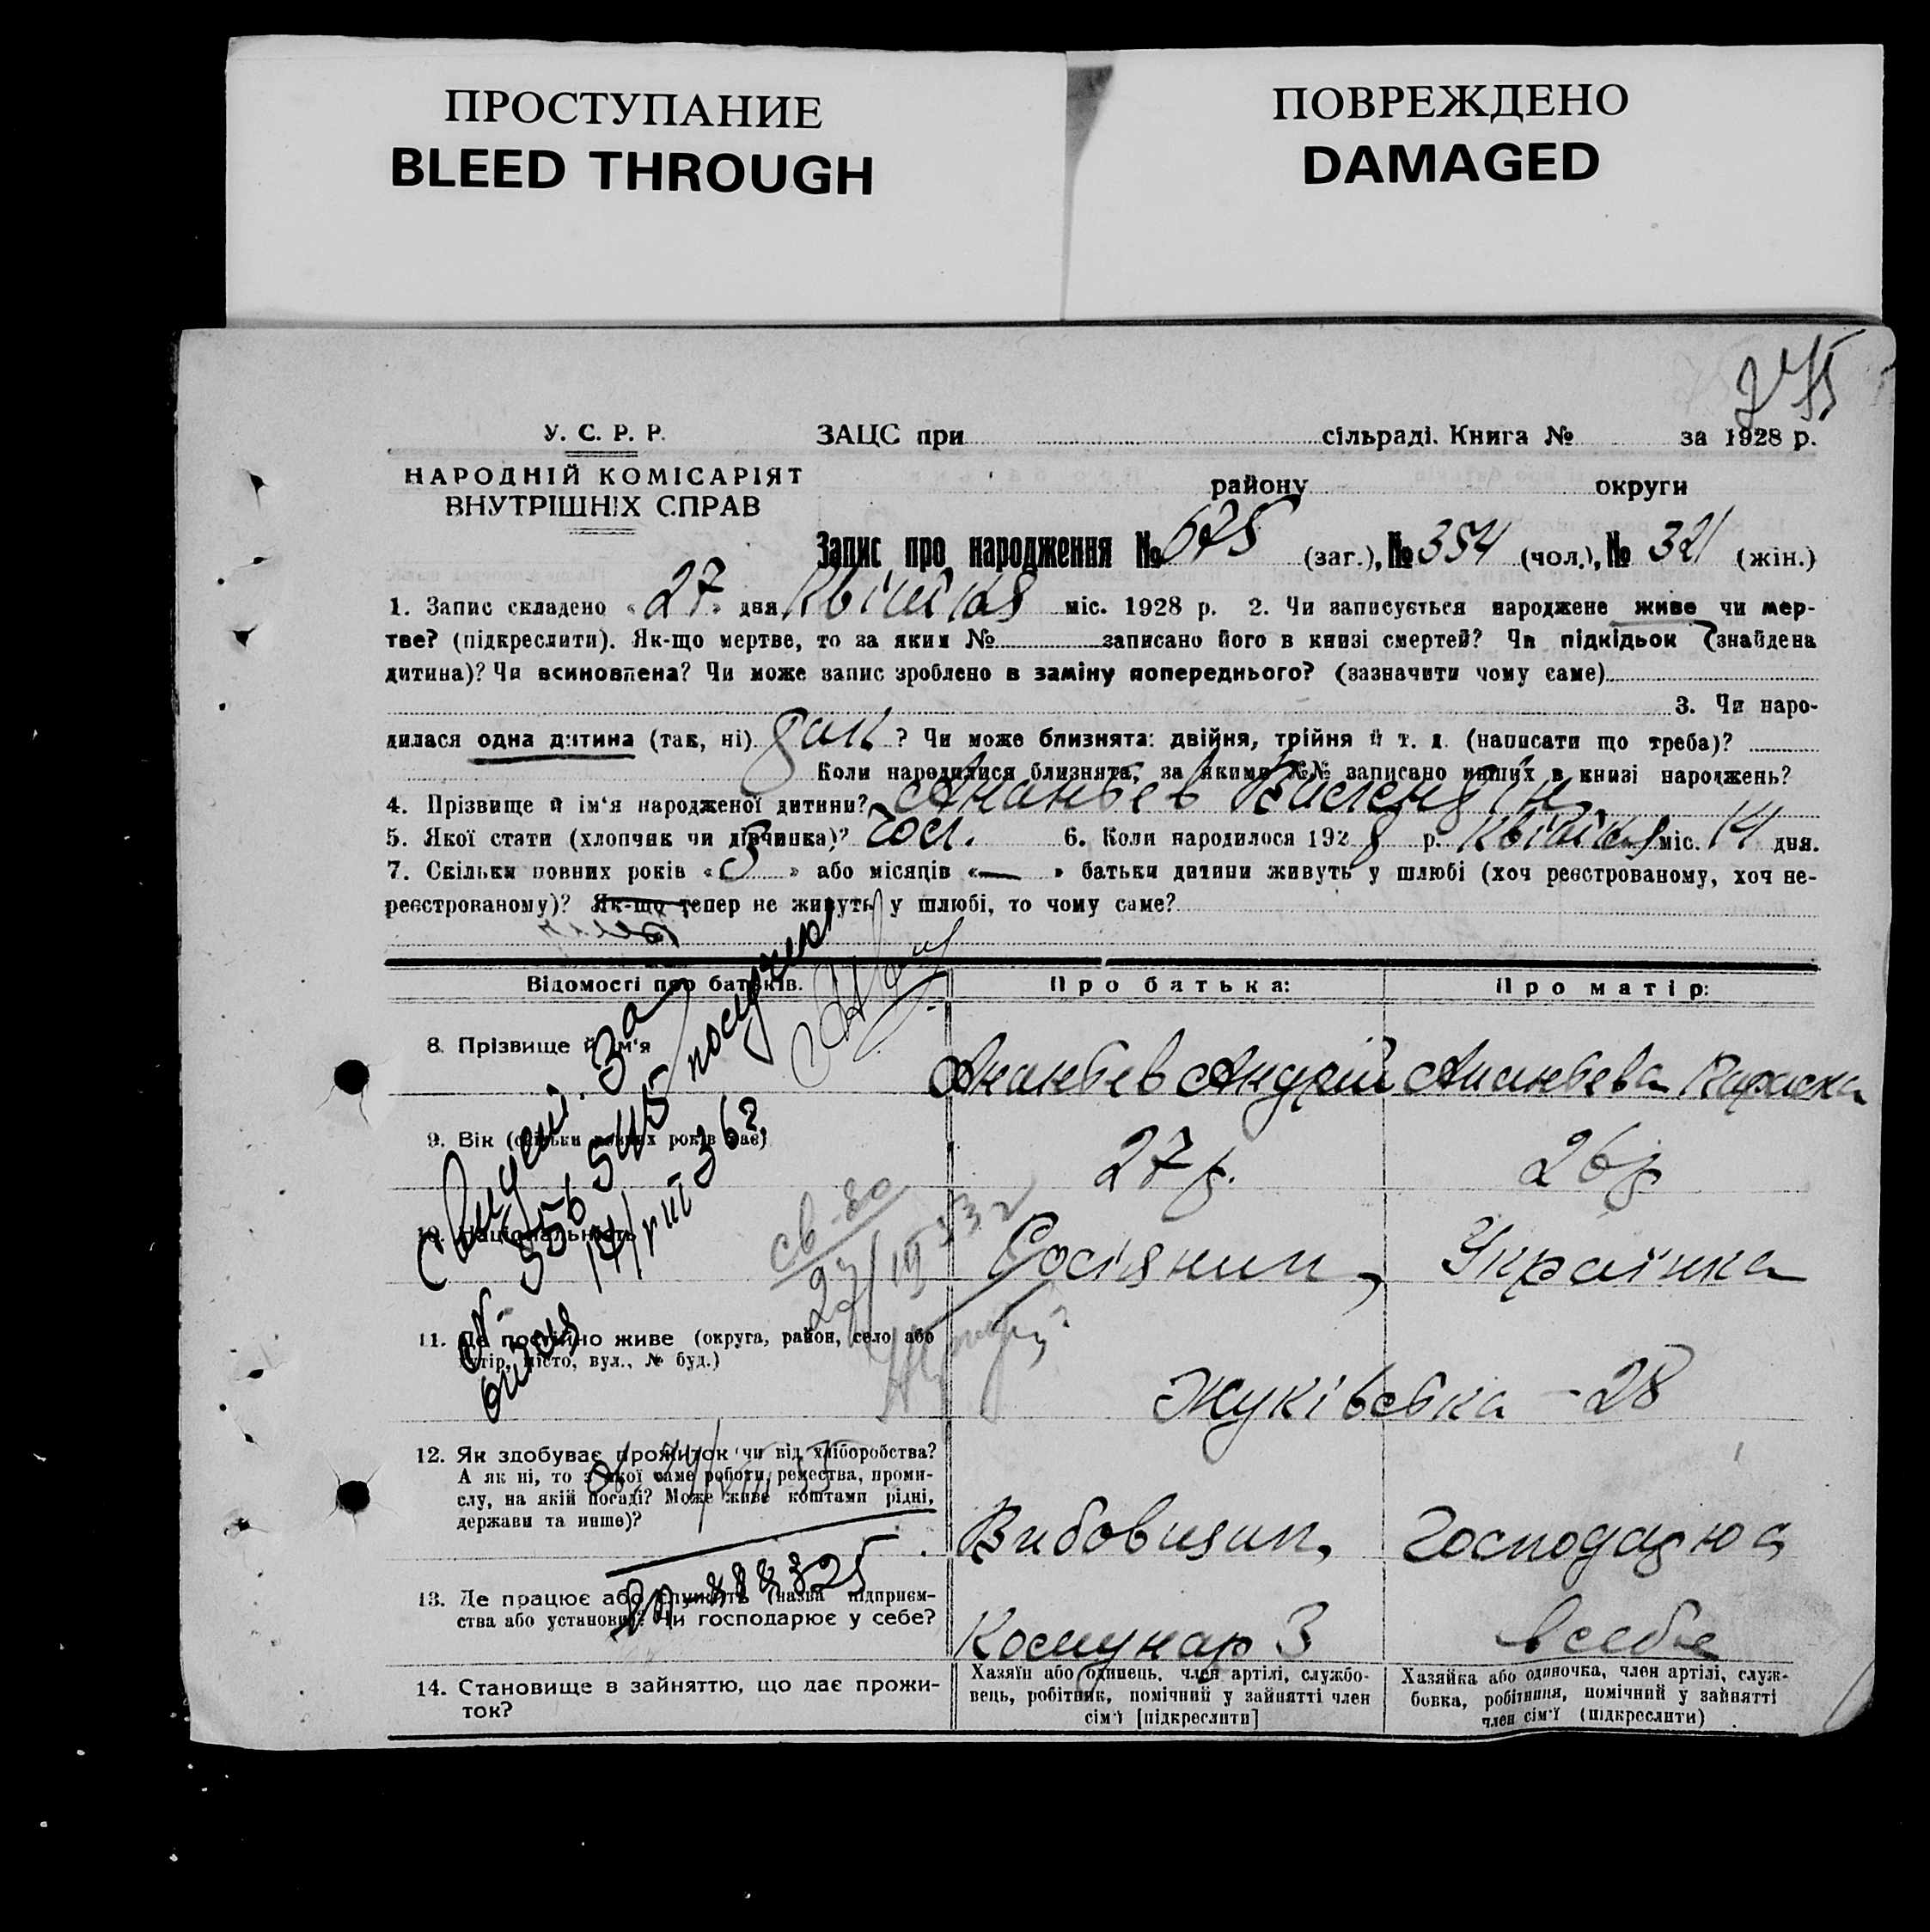 ПРОСТУПАНИЕ
BLEED THROUGH
ПОВРЕЖДЕНО
DAMAGED
У. С. Р. Р.
НАРОДНІЙ КОМІСАРІЯТ
ВНУТРІШНІХ СПРАВ
ЗАЦС при сільраді. Книга № за 1928 р.
району округи
Запис про народження № 675 (заг.), № 354 (чол.), № 321 (жін.)
1. Запис складено „27" дня квітня міс. 1928 р. 2. Чи записується народжене живе чи мер-
тве? (підкреслити). Як-що мертве, то за яким № записано його в книзі смертей? Чи підкідьок (знайдена
дитина)? Чи всиновлена? Чи може запис зроблено в заміну попереднього? (зазначити чому саме)
3. Чи наро-
дилася одна дитина (так, ні) ? Чи може близнята: двійня, трійня й т. д. (написати що треба)?
Коли народилися близнята, за якими №№ записано инших в книзі народжень?
4. Прізвище й ім'я народженої дитини? Ананьєв Валентін
5. Якої стати (хлопчик чи дівчинка)? чол. 6. Коли народилося 1928 р. квітня міс. 14 дня.
7. Скільки повних років «3» або місяців «—» батьки дитини живуть у шлюбі (хоч реєстрованому, хоч не-
реєстрованому)? Як-що тепер не живуть у шлюбі, то чому саме?
Відомості про батьків. Про батька: Про матір:
8. Прізвище й ім'я Ананьєв Андрій Ананьєва Параска
9. Вік (скільки повних років має) 27 р. 26 р.
10. Національність Росіянин, Українка
11. Де постійно живе (округа, район, село або
хутір, місто, вул., № буд.)
Жуківська - 28
12. Як здобуває прожиток чи від хліборобства?
А як ні, то з якої саме роботи, ремества, проми-
слу, на якій посаді? Може живе коштами рідні,
держави та инше)?
13. Де працює або служить (назва підприєм-
ства або установи)? Чи господарює у себе?
Комунар 3 в себе
14. Становище в зайняттю, що дає прожи-
ток?
Хазяїн або одинець, член артілі, службо-
вець, робітник, помічний у зайнятті член
сім'ї [підкреслити]
Хазяйка або одиночка, член артілі, служ-
бовка, робітниця, помічний у зайнятті
член сім'ї (підкреслити)